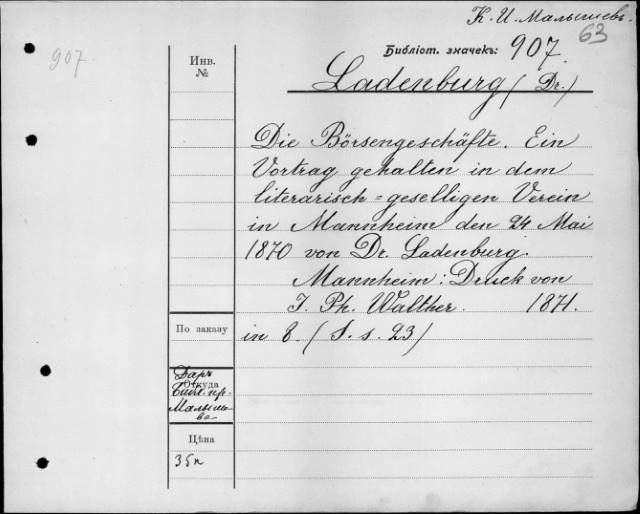 К. И. Малышевъ.
63
907
Библіот. значекъ: 907.
Инв.
№
Ladenburg (Dr.)
Die Börsengeschäfte. Ein
Vortrag gehalten in dem
literarisch=geselligen Verein
in Mannheim den 24 Mai
1870 von Dr. Ladenburg.
Mannheim: Druck von
J. Ph. Walther. 1871.
По заказу
in 8. (S. s. 23)
Откуда
Даръ
Малыше-
ва
Цѣна
35к